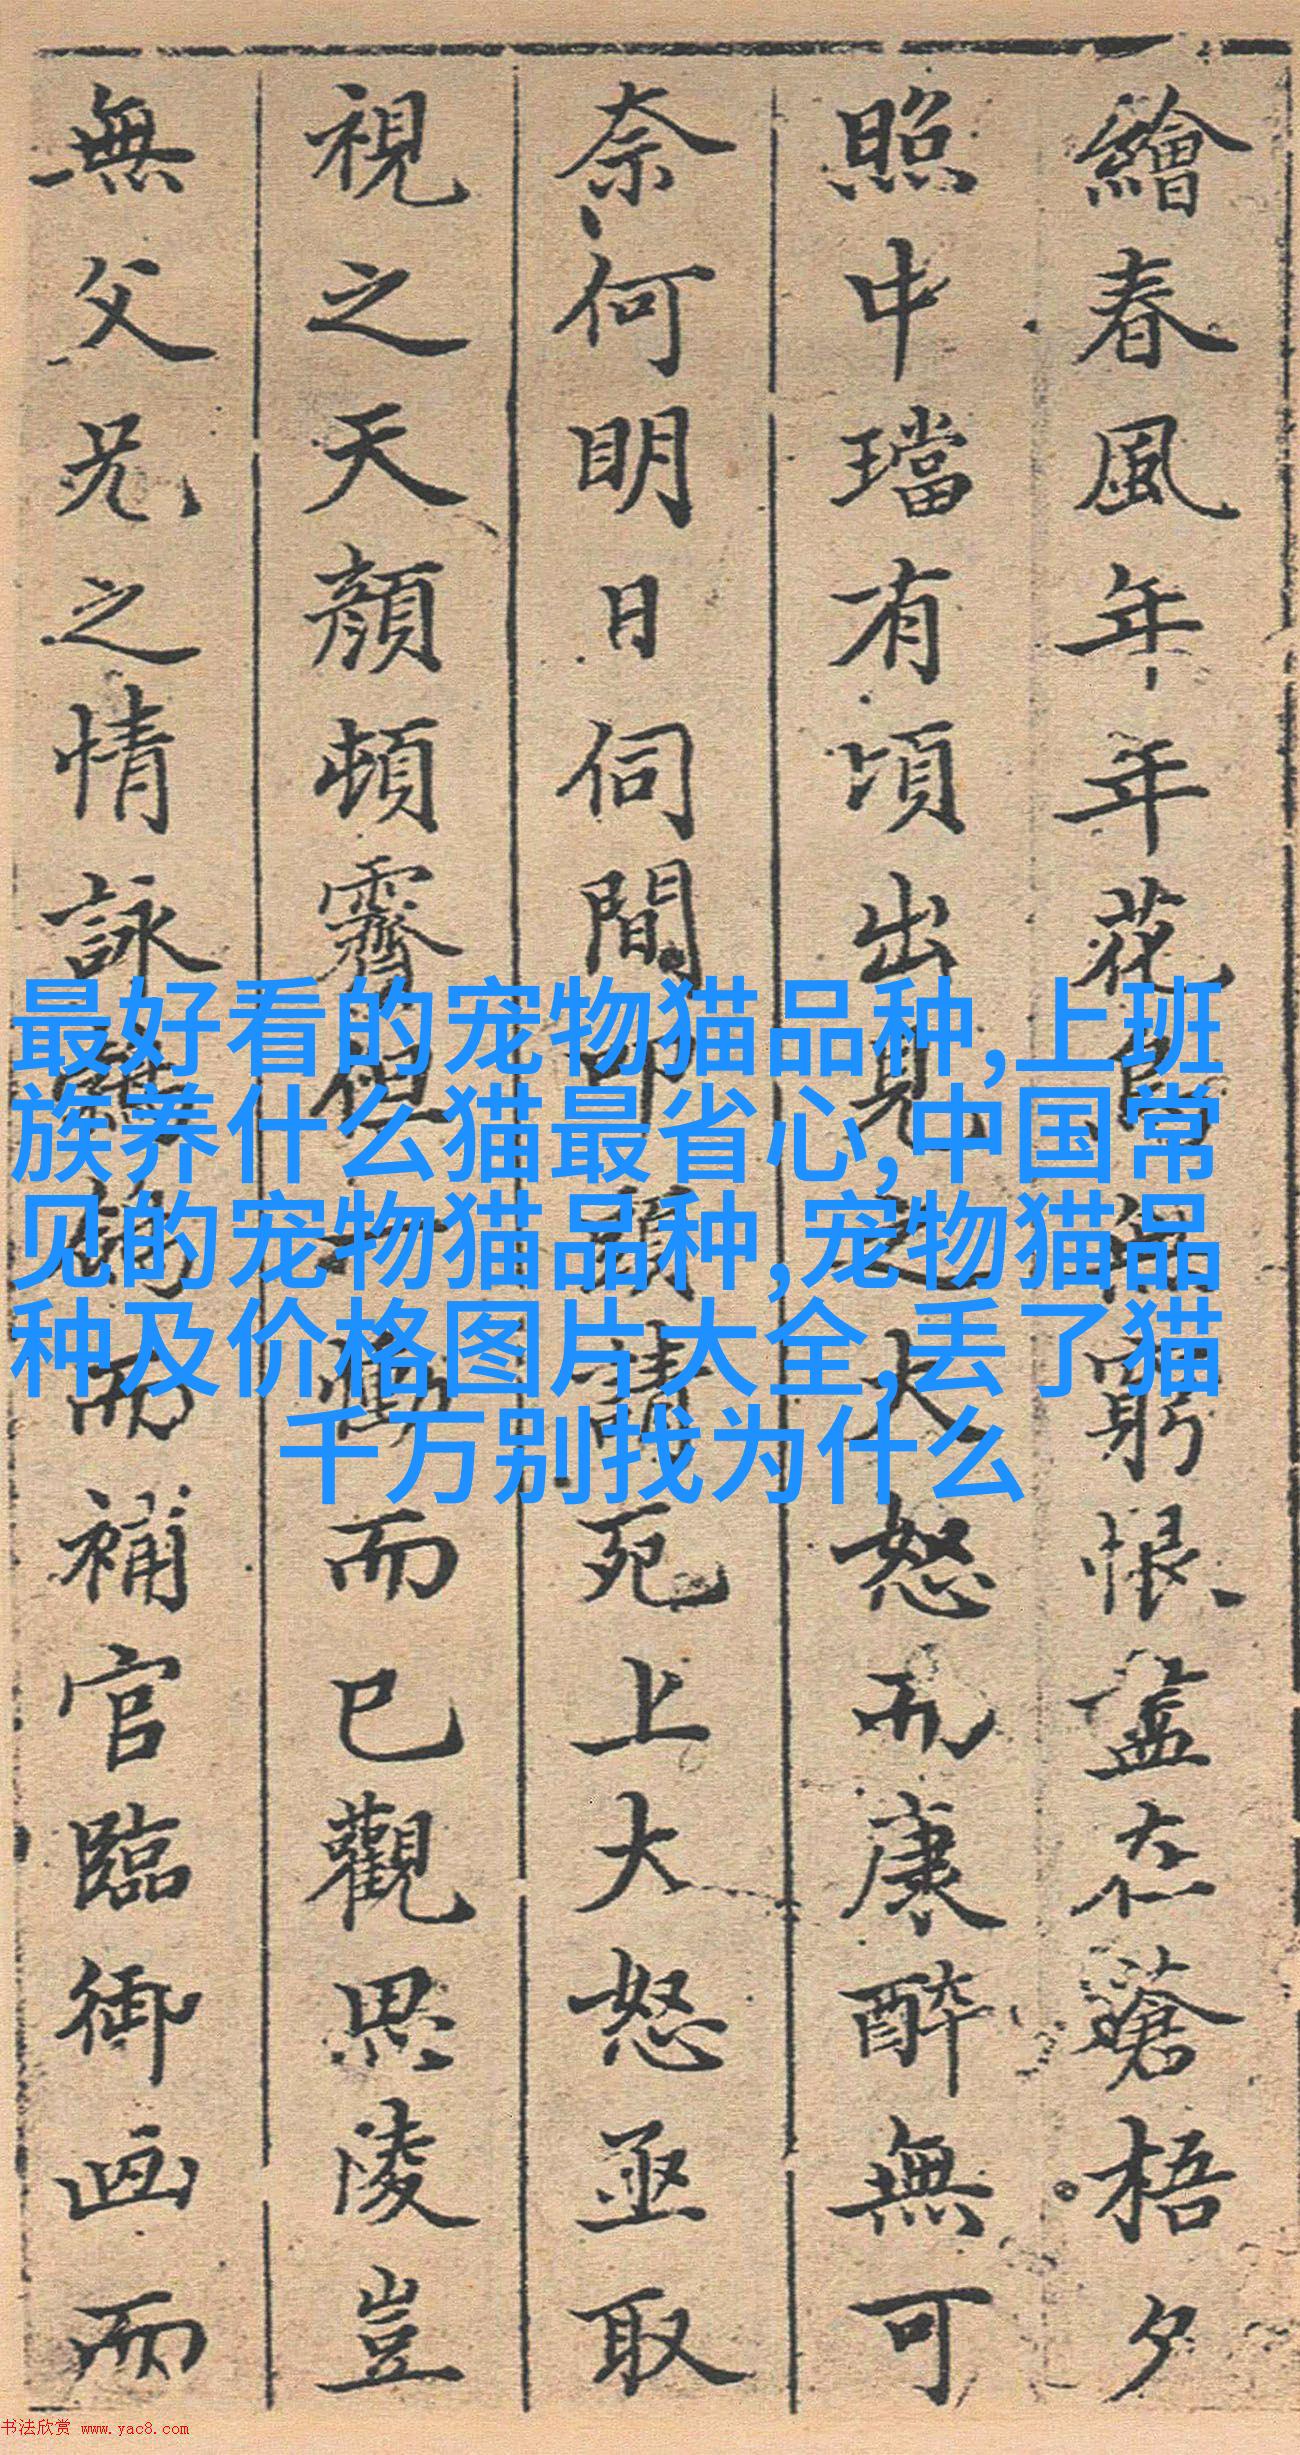 繪春風年年花鳥無窮恨盡在蒼梧夕
照中璫有頃出見之大怒而康醉無可
奈何明日伺間叩頭請死上大怒亟取
視之天顏頓霽但一慟而已觀思陵豈
無父兄之情詠而補官臨御画而
最好看的宠物猫品种,上班
族养什么猫最省心,中国常
见的宠物猫品种,宠物猫品
种及价格图片大全,丢了猫
千万别找为什么
书法欣赏 www.yac8.com